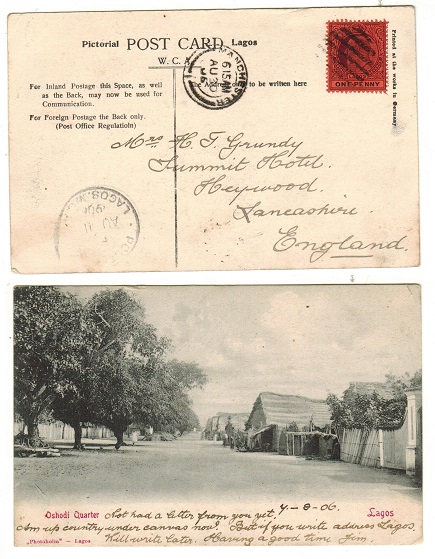 Pictorial POST CARD Lagos
W. C. A.
Printed at the works in Germany
For Inland Postage this Space, as well
as the Back, may now be used for
Communication.
For Foreign Postage the Back only.
(Post Office Regulatioln)
to be written here
MANCHESTER
6.15AM
AU 30
06
ONE PENNY
Mrs H. T. Grundy
Summit Hotel.
Heywood.
Lancashire.
England.
LAGOS. W.
AU 11
Oshodi Quarter
Lagos
Not had a letter from you yet, 7-8-06.
Am up country under canvas now. But if you write address Lagos.
Will write later. Having a good time. Jim.
„Photoholm" — Lagos